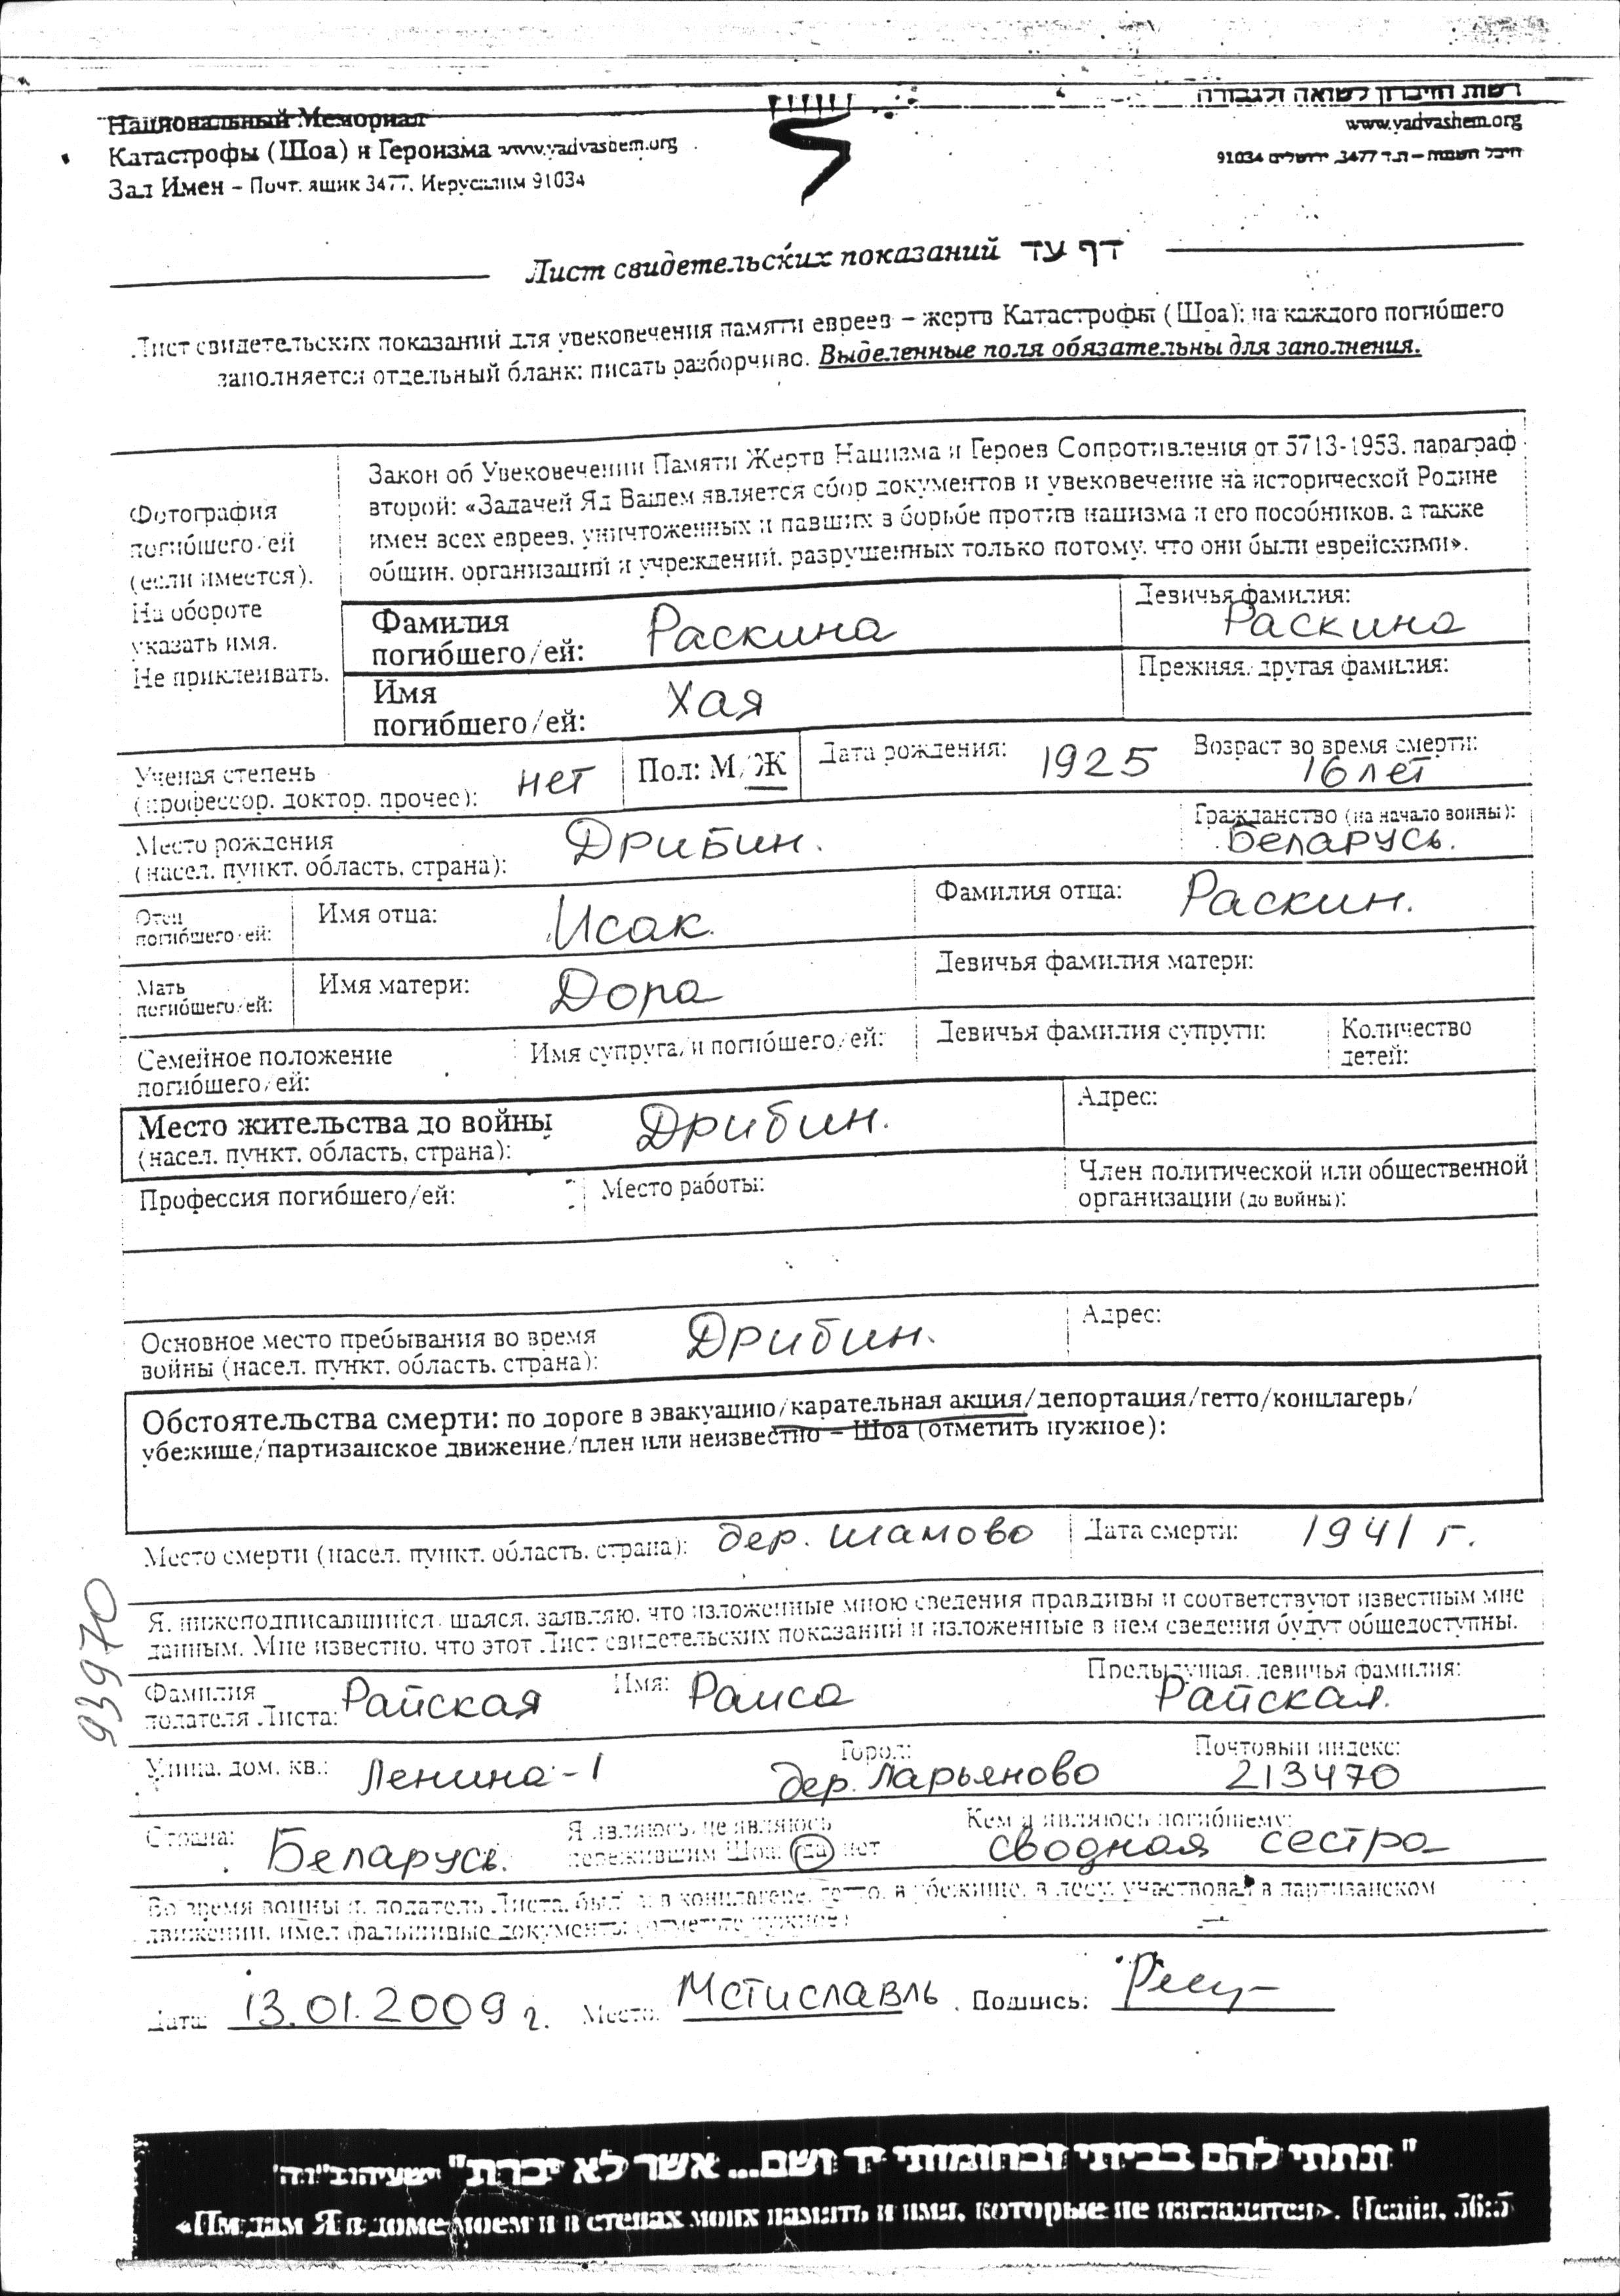 Национальный Мемориал
Катастрофы (Шоа) и Героизма www.yadvashem.org
Зал Имен – Почт. ящик 3477, Иерусалим 91034
רשות הזיכרון לשואה ולגבורה
www.yadvashem.org
היכל השמות – ת.ד 3477, ירושלים 91034
Лист свидетельских показаний דף עד
Лист свидетельских показаний для увековечения памяти евреев – жертв Катастрофы (Шоа); на каждого погибшего
заполняется отдельный бланк; писать разборчиво. Выделенные поля обязательны для заполнения.
Фотография
погибшего/ей
(если имеется).
На обороте
указать имя.
Не приклеивать.
Закон об Увековечении Памяти Жертв Нацизма и Героев Сопротивления от 5713-1953, параграф
второй: «Задачей Яд Вашем является сбор документов и увековечение на исторической Родине
имен всех евреев, уничтоженных и павших в борьбе против нацизма и его пособников, а также
общин, организаций и учреждений, разрушенных только потому, что они были еврейскими».
Фамилия
погибшего/ей: Раскина
Девичья фамилия:
Раскина
Имя
погибшего/ей: Хая
Прежняя/другая фамилия:
Ученая степень
(профессор, доктор, прочее): нет
Пол: М/Ж
Дата рождения: 1925
Возраст во время смерти:
16 лет
Место рождения
(насел. пункт, область, страна): Дрибин.
Гражданство (на начало войны):
Беларусь.
Отец
погибшего/ей:
Имя отца: Исак.
Фамилия отца: Раскин.
Мать
погибшего/ей:
Имя матери: Дора
Девичья фамилия матери:
Семейное положение
погибшего/ей:
Имя супруга/и погибшего/ей:
Девичья фамилия супруги:
Количество
детей:
Место жительства до войны
(насел. пункт, область, страна): Дрибин.
Адрес:
Профессия погибшего/ей:
Место работы:
Член политической или общественной
организации (до войны):
Основное место пребывания во время
войны (насел. пункт, область, страна): Дрибин.
Адрес:
Обстоятельства смерти: по дороге в эвакуацию/карательная акция/депортация/гетто/концлагерь/
убежище/партизанское движение/плен или неизвестно – Шоа (отметить нужное):
Место смерти (насел. пункт, область, страна): дер. Шамово
Дата смерти: 1941 г.
Я, нижеподписавшийся/шаяся, заявляю, что изложенные мною сведения правдивы и соответствуют известным мне
данным. Мне известно, что этот Лист свидетельских показаний и изложенные в нем сведения будут общедоступны.
93970
Фамилия
подателя Листа: Райская
Имя: Раиса
Предыдущая/девичья фамилия:
Райская.
Улица, дом, кв.: Ленина-1
Город:
дер. Ларьяново
Почтовый индекс:
213470
Страна: Беларусь.
Я являюсь/не являюсь
пережившим Шоа: да/нет
Кем я являюсь погибшему:
сводная сестра
Во время войны я, податель Листа, был/а в концлагере, гетто, в убежище, в лесу, участвовал в партизанском
движении, имел фальшивые документы (отметьте нужное)
Дата: 13.01.2009 г. Место: Мстиславль. Подпись:
"ונתתי להם בביתי ובחומותי יד ושם... אשר לא יכרת" ישעיהו נ"ו:ה'
«Им дам Я в доме моем и в стенах моих память и имя, которые не изгладятся». Исайя, 56:5